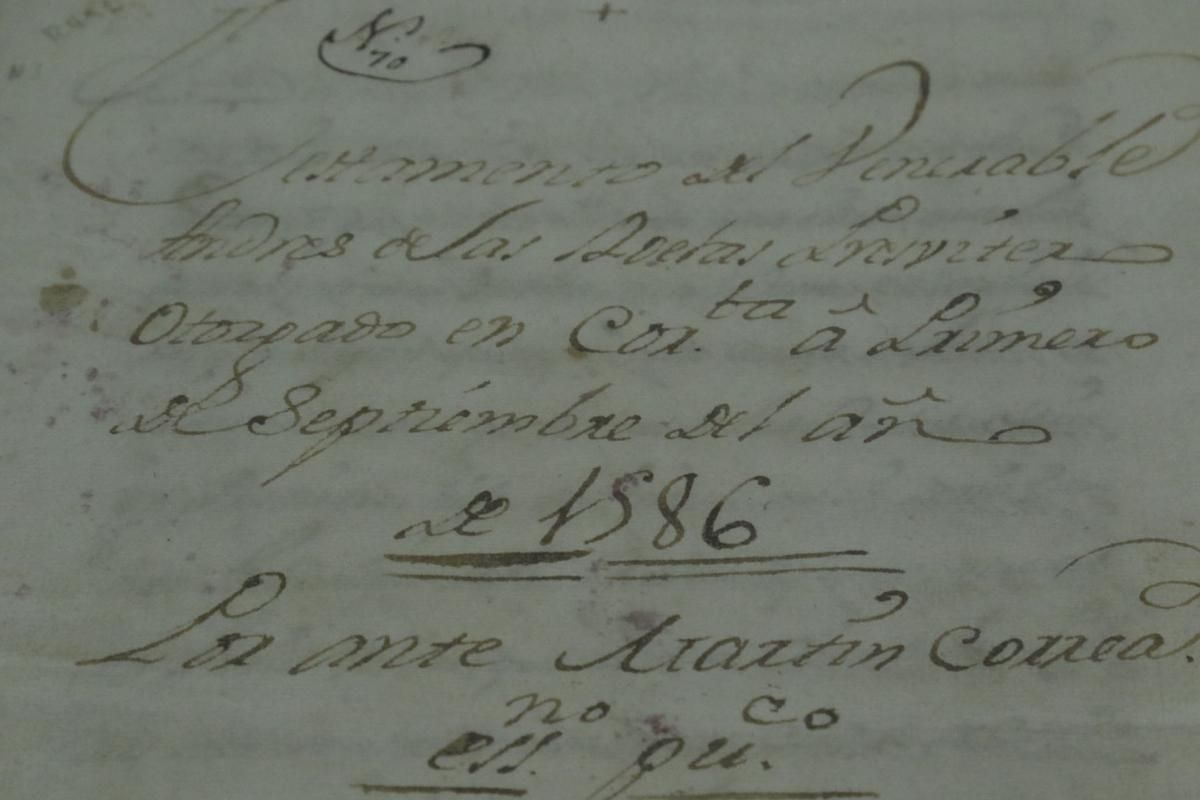 N.º 70
Testamento del Venerable
Andres de las Roelas Presviter
Otorgado en Cor.ta â Primero
de Septiembre del añ
de 1586
Por ante Martin Correa.
ess.no pu.co